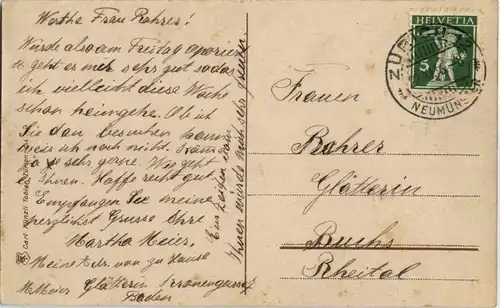 Werthe Frau Rohrer!
Wurde also am Freitag operiert
geht es mir sehr gut sodas
ich vielleicht diese Woche
schon heimgehe. Ob ich
Sie dan besuchen kann
weis ich noch nicht.
so sehr gerne. Wie geht
es Ihnen. Hoffe recht gut.
Empfangen Sie meine
herzlichst Grüsse Ihre
Martha Meier.
Meine Adr. von zu Hause
M. Meier Glätterin
Baden
Ein Zeichen von
Ihnen würde mich sehr freuen
Carl Künzli Tobler, Zürich
HELVETIA
5
ZÜRICH
NEUMÜNSTER
Frauen
Rohrer
Glätterin
Buchs
Rheital